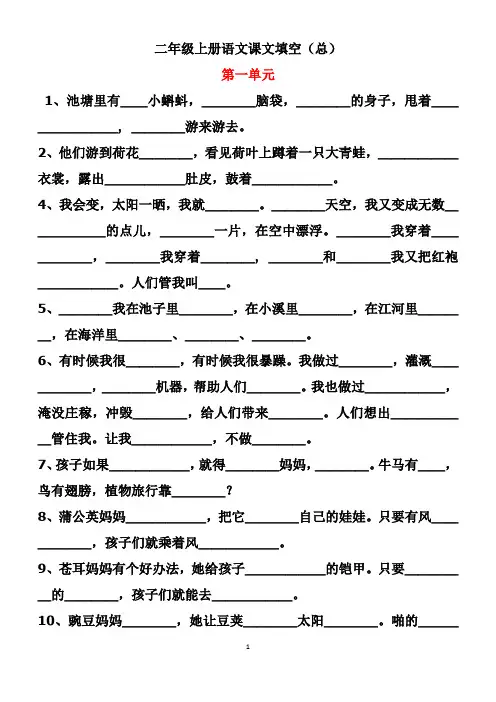 二年级上册语文课文填空（总）
第一单元
1、池塘里有____小蝌蚪，________脑袋，________的身子，甩着____
____________，________游来游去。
2、他们游到荷花________，看见荷叶上蹲着一只大青蛙，____________
衣裳，露出____________肚皮，鼓着____________。
4、我会变，太阳一晒，我就________。________天空，我又变成无数__
__________的点儿，________一片，在空中漂浮。________我穿着____
________，________我穿着________，________和________我又把红袍
____________。人们管我叫____。
5、________我在池子里________，在小溪里________，在江河里______
__，在海洋里________、________、________。
6、有时候我很________，有时候我很暴躁。我做过________，灌溉____
________，________机器，帮助人们________。我也做过____________，
淹没庄稼，冲毁________，给人们带来________。人们想出__________
__管住我。让我____________，不做________。
7、孩子如果____________，就得________妈妈，________。牛马有____，
鸟有翅膀，植物旅行靠________？
8、蒲公英妈妈____________，把它________自己的娃娃。只要有风____
________，孩子们就乘着风____________。
9、苍耳妈妈有个好办法，她给孩子____________的铠甲。只要________
__的________，孩子们就能去____________。
10、豌豆妈妈________，她让豆荚________太阳________。啪的______
1